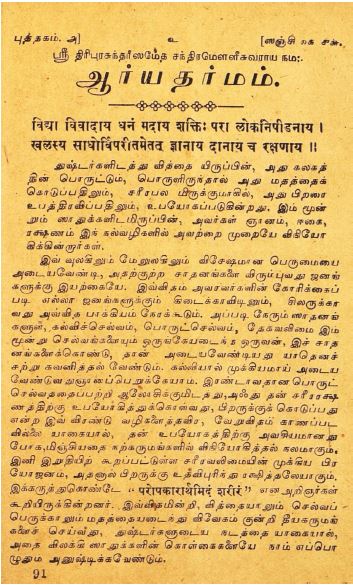 புத்தகம். அ] உ [ஸஞ்சிகை கூ.
ஸ்ரீ திரிபுரசுந்தரீஸமேத சந்திரமௌளீசுவராய நம:.
ஆர்யதர்மம்.
विद्या विवादाय धनं मदाय शक्तिः परा लोकनिपीडनाय ।
खलस्य साधोर्विपरीतमेतत् ज्ञानाय दानाय च रक्षणाय ॥
துஷ்டர்களிடத்து வித்தை யிருப்பின், அது கலகத்
தின் பொருட்டும், பொருளிருந்தால் அது மதத்தைக்
கொடுப்பதிலும், சரீரபல மிருக்குமாகில், அது பிறரை
உபத்திரவிப்பதிலும், உபயோகப்படுகின்றது. இம் மூன்
றும் ஸாதுக்களிடமிருப்பின், அவர்கள் ஞானம், ஈகை,
ரக்ஷணம் இக் கல்வழிகளில் அவற்றை முறையே விநியோ
கிக்கின்றார்கள்.
இவ் வுலகிலும் மேலுலகிலும் விசேஷமான பெருமையை
அடையவேண்டி, அதற்குற்ற சாதனங்களை விரும்புவது ஜனங்
களுக்கு இயற்கையே. இவ்விதம் அவரவர்களின் கோரிக்கைப்
படி எல்லா ஜனங்களுக்கும் கிடைக்காவிடினும், சிலருக்கா
வது அவ்வித பாக்கியம் நேரக்கூடும். அப்படி நேரும் ஸாதனங்
களுள், கல்விச்செல்வம், பொருட்செல்வம், தேகவலிமை இம்
மூன்று செல்வங்களையும் ஒருங்கேயடைந்த ஒருவன், இச் சாத
னங்களைக்கொண்டு, தான் அடையவேண்டியது யாதெனச்
சற்று கவனித்தல் வேண்டும். கல்வியால் முக்கியமாய் அடைய
வேண்டுவது ஞானப்பெறுக்கேயாம். இரண்டாவதான பொருட்
செல்வத்தைப்பற்றி ஆலோசிக்குமிடத்து, அஃது தன் சரீரரக்ஷ
ணத்திற்கு உபயோகித்துக்கொள்வது, பிறருக்குக் கொடுப்பது
என்ற இவ் விரண்டு வழிகளைத்தவிர, வேறுவிதம் காணப்பட
வில்லை யாகையால், தன் உபயோகத்திற்கு அவசியமானது
போக, மிஞ்சியதை நற்கருமங்களில் விநியோகித்தல் நலமாகும்.
இனி இறுதியிற் கூறப்பட்டுள்ள சரீரவலிமையின் முக்கிய பிர
யோஜனம், அதனால் பிறருக்கு உதவிபுரிந்து ரக்ஷித்தலேயாகும்.
இக்கருத்துகொண்டே “परोपकारार्थमिदं शरीरं” என அறிஞர்கள்
கூறியிருக்கின்றனர். இவ்விதமின்றி, வித்தையாலும் செல்வப்
பெருக்காலும் மதத்தையடைந்து விவேகம் குன்றி தீயகருமங்
களைச் செய்வது, துஷ்டர்களுடைய நடத்தை யாகையால்,
அதை விலக்கி ஸாதுக்களின் கொள்கைகளையே நாம் எப்பொ
ழுதும் அனுஷ்டிக்கவேண்டும்.
91